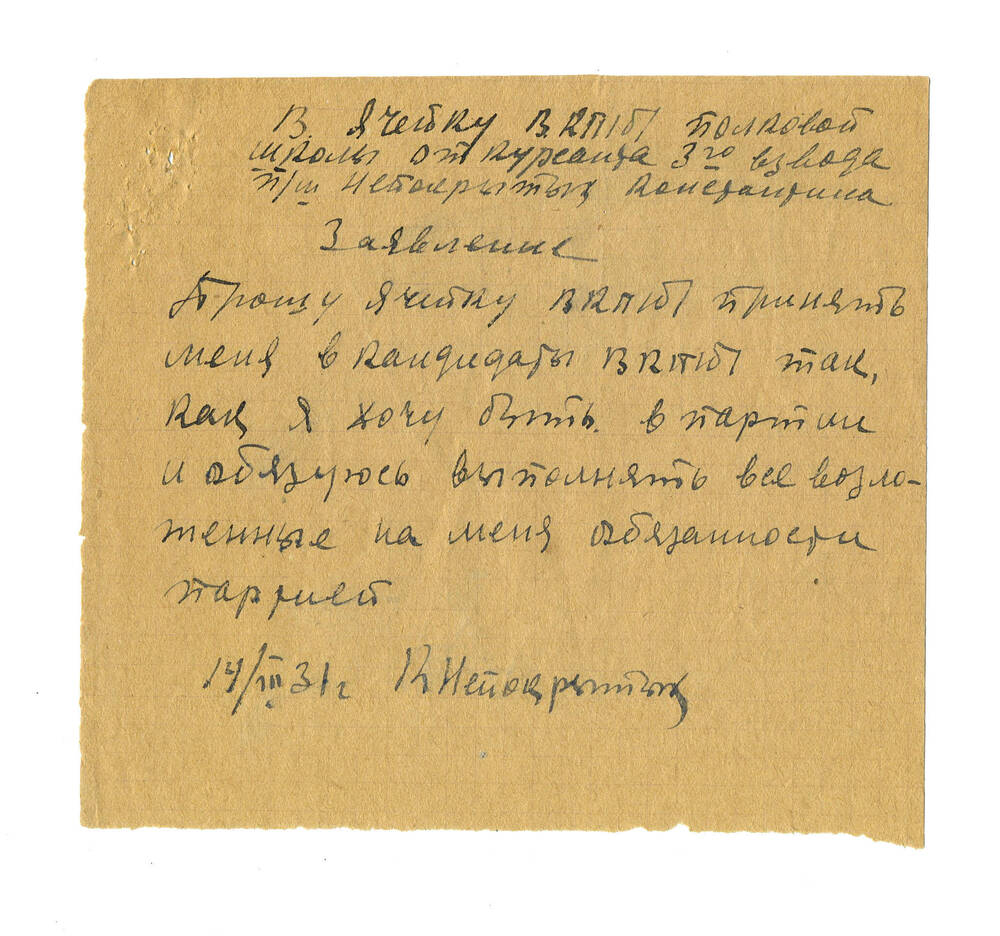 В ячейку ВКП/б/ полковой
школы от курсанта 3го взвода
п/ш Непокрытых Константина
Заявление
Прошу ячейку ВКП/б/ принять
меня в кандидаты ВКП/б/ так,
как я хочу быть в партии
и обязуюсь выполнять все возло-
женные на меня обязанности
партией
14/III 31 г К Непокрытых